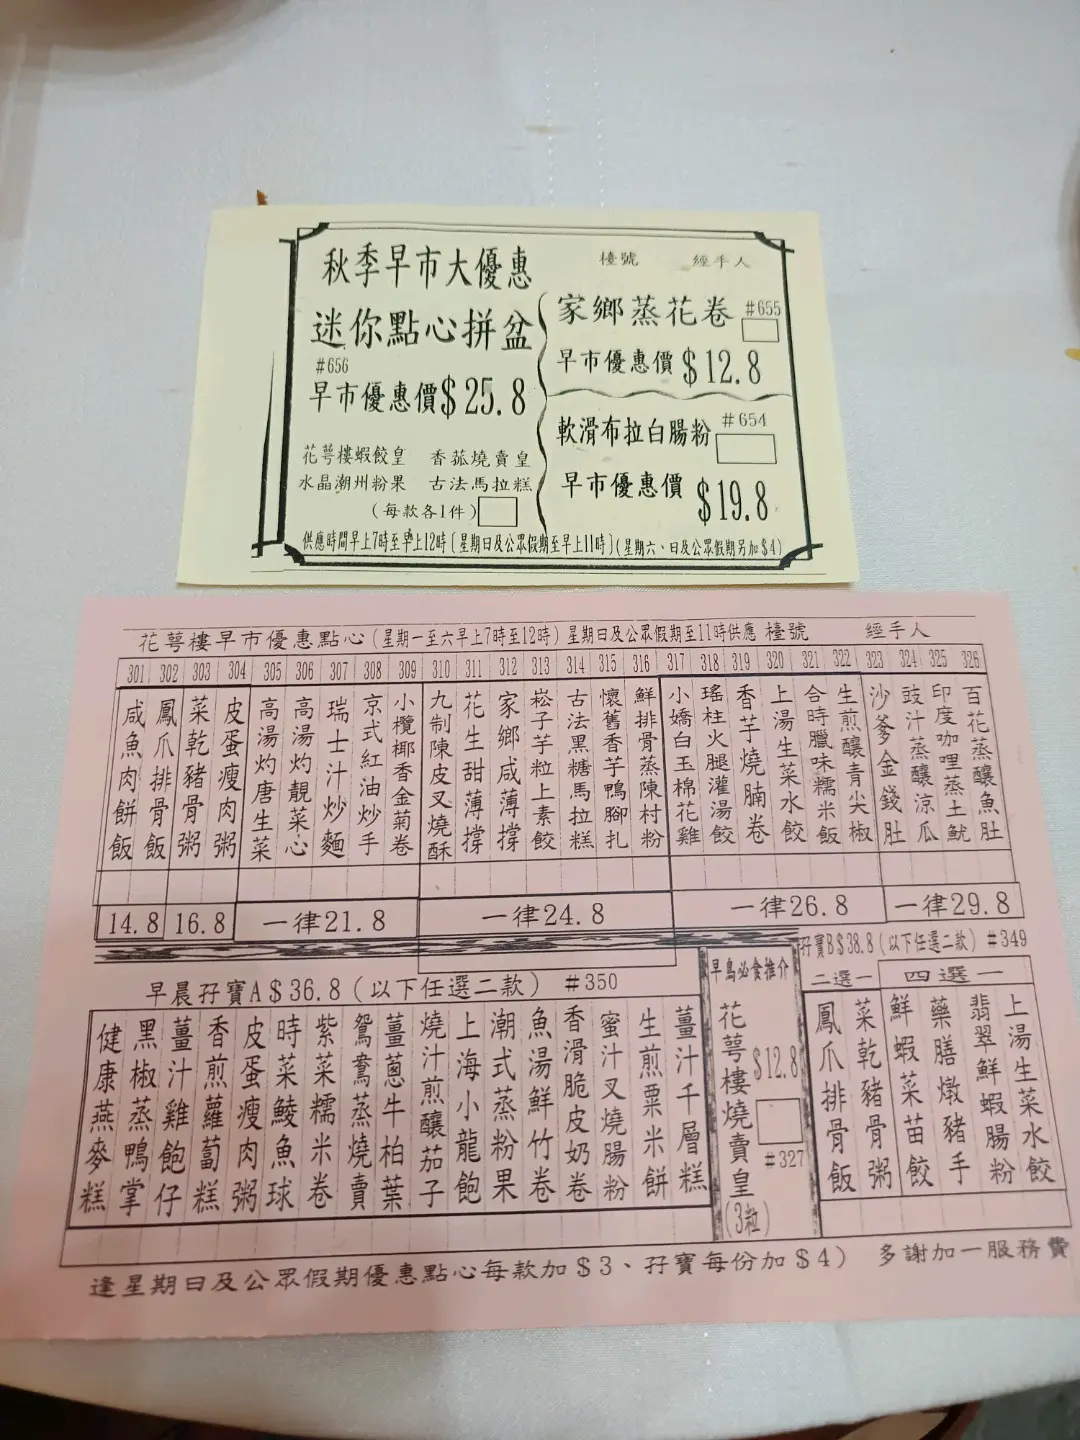 秋季早市大優惠
檯號 經手人
迷你點心拼盆
#656
早市優惠價$25.8
花萼樓蝦餃皇 香菰燒賣皇
水晶潮州粉果 古法馬拉糕
(每款各1件)
家鄉蒸花卷 #655
早市優惠價 $12.8
軟滑布拉白腸粉 #654
早市優惠價 $19.8
供應時間早上7時至早上12時〔星期日及公眾假期至早上11時〕(星期六、日及公眾假期另加$4)
花萼樓早市優惠點心(星期一至六早上7時至12時) 星期日及公眾假期至11時供應 檯號 經手人
301 302 303 304 305 306 307 308 309 310 311 312 313 314 315 316 317 318 319 320 321 322 323 324 325 326
咸魚肉餅飯
鳳爪排骨飯
菜乾豬骨粥
皮蛋瘦肉粥
高湯灼唐生菜
高湯灼靚菜心
瑞士汁炒麵
京式紅油炒手
小欖椰香金菊卷
九制陳皮叉燒酥
花生甜薄撐
家鄉咸薄撐
崧子芋粒上素餃
古法黑糖馬拉糕
懷舊香芋鴨腳扎
鮮排骨蒸陳村粉
小嬌白玉棉花雞
瑤柱火腿灌湯餃
香芋燒腩卷
上湯生菜水餃
合時臘味糯米飯
生煎釀青尖椒
沙爹金錢肚
豉汁蒸釀涼瓜
印度咖哩蒸土魷
百花蒸釀魚肚
14.8 16.8 一律21.8 一律24.8 一律26.8 一律29.8
早晨孖寶A$36.8(以下任選二款) #350
健康燕麥糕
黑椒蒸鴨掌
薑汁雞飽仔
香煎蘿蔔糕
皮蛋瘦肉粥
時菜鯪魚球
紫菜糯米卷
鴛鴦蒸燒賣
薑蔥牛柏葉
燒汁煎釀茄子
上海小龍飽
潮式蒸粉果
魚湯鮮竹卷
香滑脆皮奶卷
蜜汁叉燒腸粉
生煎粟米餅
薑汁千層糕
早鳥必食推介
花萼樓燒賣皇(3粒)
$12.8
#327
孖寶B$38.8(以下任選二款) #349
二選一 四選一
鳳爪排骨飯
菜乾豬骨粥
鮮蝦菜苗餃
藥膳燉豬手
翡翠鮮蝦腸粉
上湯生菜水餃
逢星期日及公眾假期優惠點心每款加$3、孖寶每份加$4) 多謝加一服務費